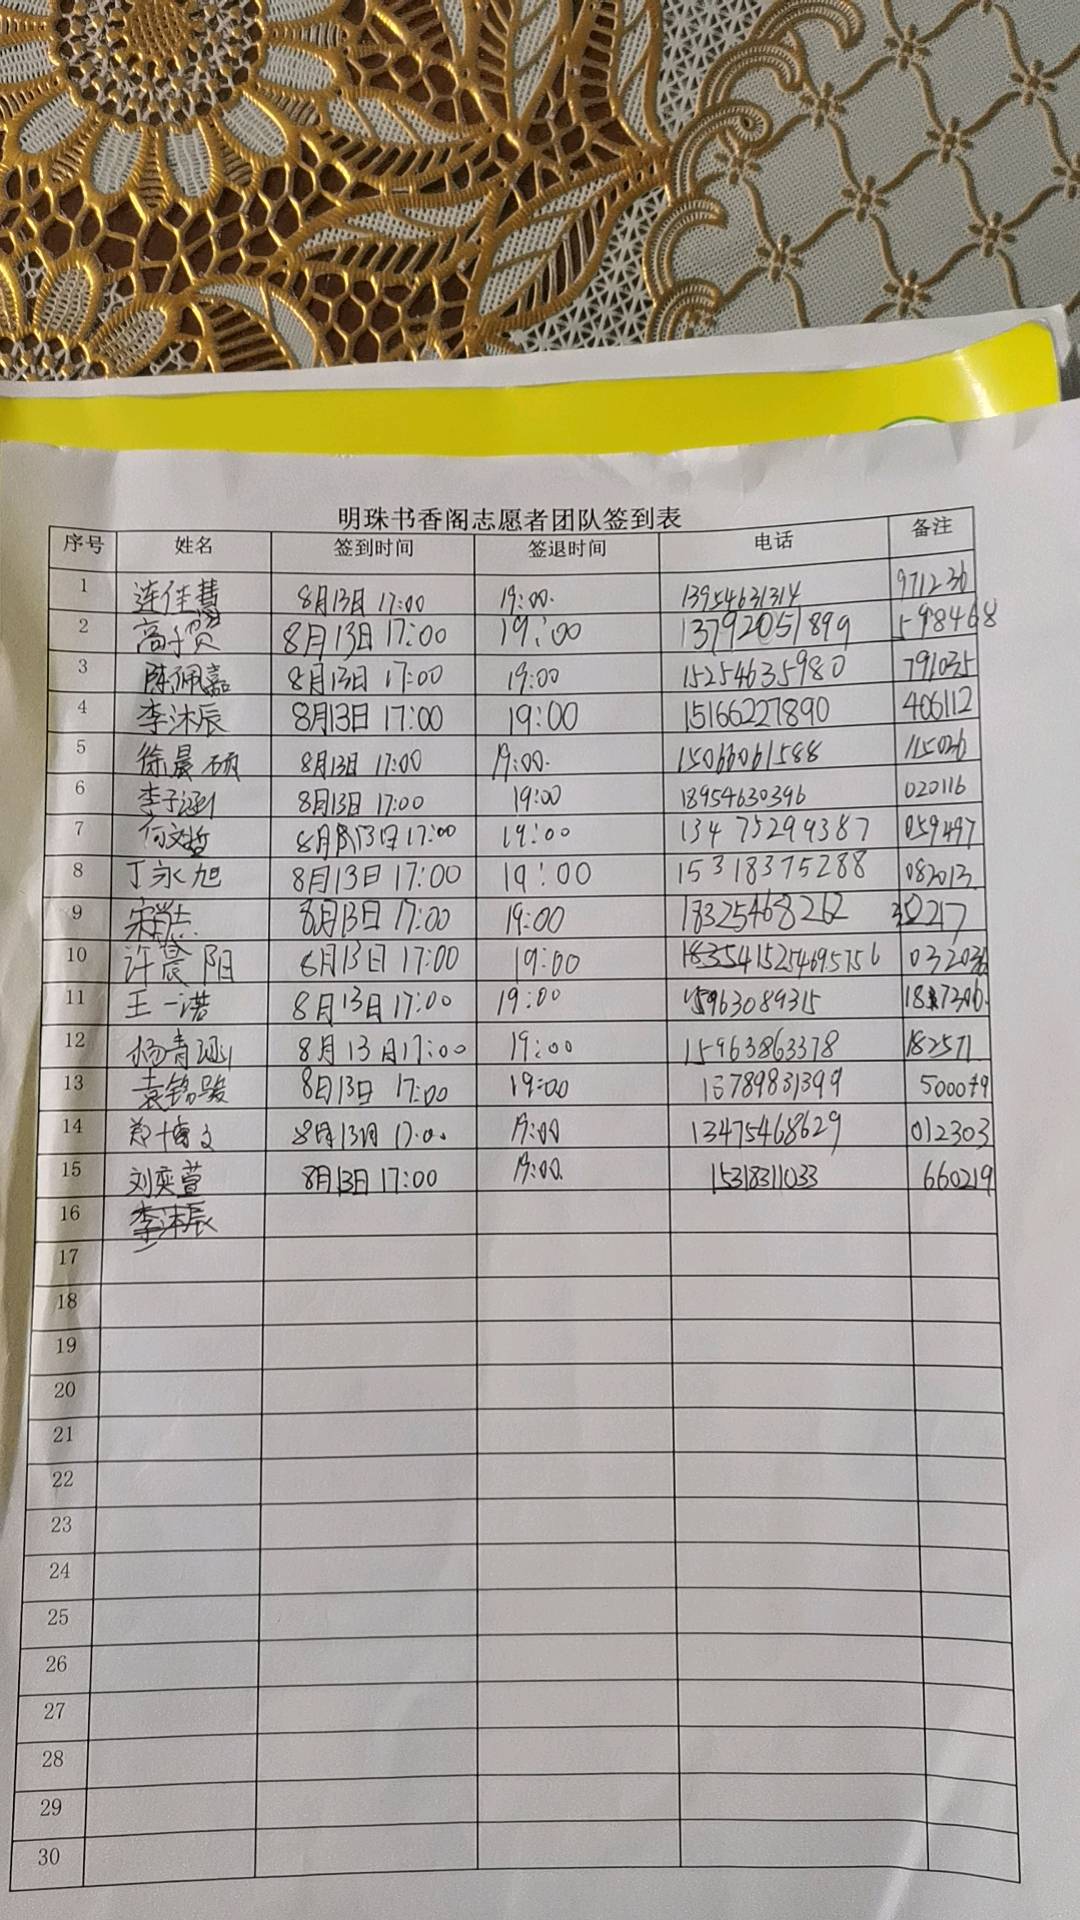 明珠书香阁志愿者团队签到表
序号 姓名 签到时间 签退时间 电话 备注
1 连佳慧 8月13日 17:00 19:00. 13954631314 971236
2 高子贺 8月13日 17:00 19:00 13792051899 598468
3 陈佩嘉 8月13日 17:00 19:00 15254635980 791035
4 李沐辰 8月13日 17:00 19:00 15166227890 406112
5 徐晨硕 8月13日 17:00 19:00. 15066061588 115026
6 李子涵 8月13日 17:00 19:00 18954630396 020116
7 何文哲 8月13日 17:00 19:00 13475299387 059497
8 丁永旭 8月13日 17:00 19:00 15318375288 082013
9 8月13日 17:00 19:00 18325468262
10 许晨阳 8月13日 17:00 19:00
11 王一诺 8月13日 17:00 19:00 15963089315
12 杨青涵 8月13日 17:00 19:00 15963863378 182571
13 袁铭骏 8月13日 17:00 19:00 13789831399 500079
14 郑博文 8月13日 17:00 19:00 13475468629 012303
15 刘奕萱 8月13日 17:00 19:00. 15318311033 660219
16 李沐辰
17
18
19
20
21
22
23
24
25
26
27
28
29
30